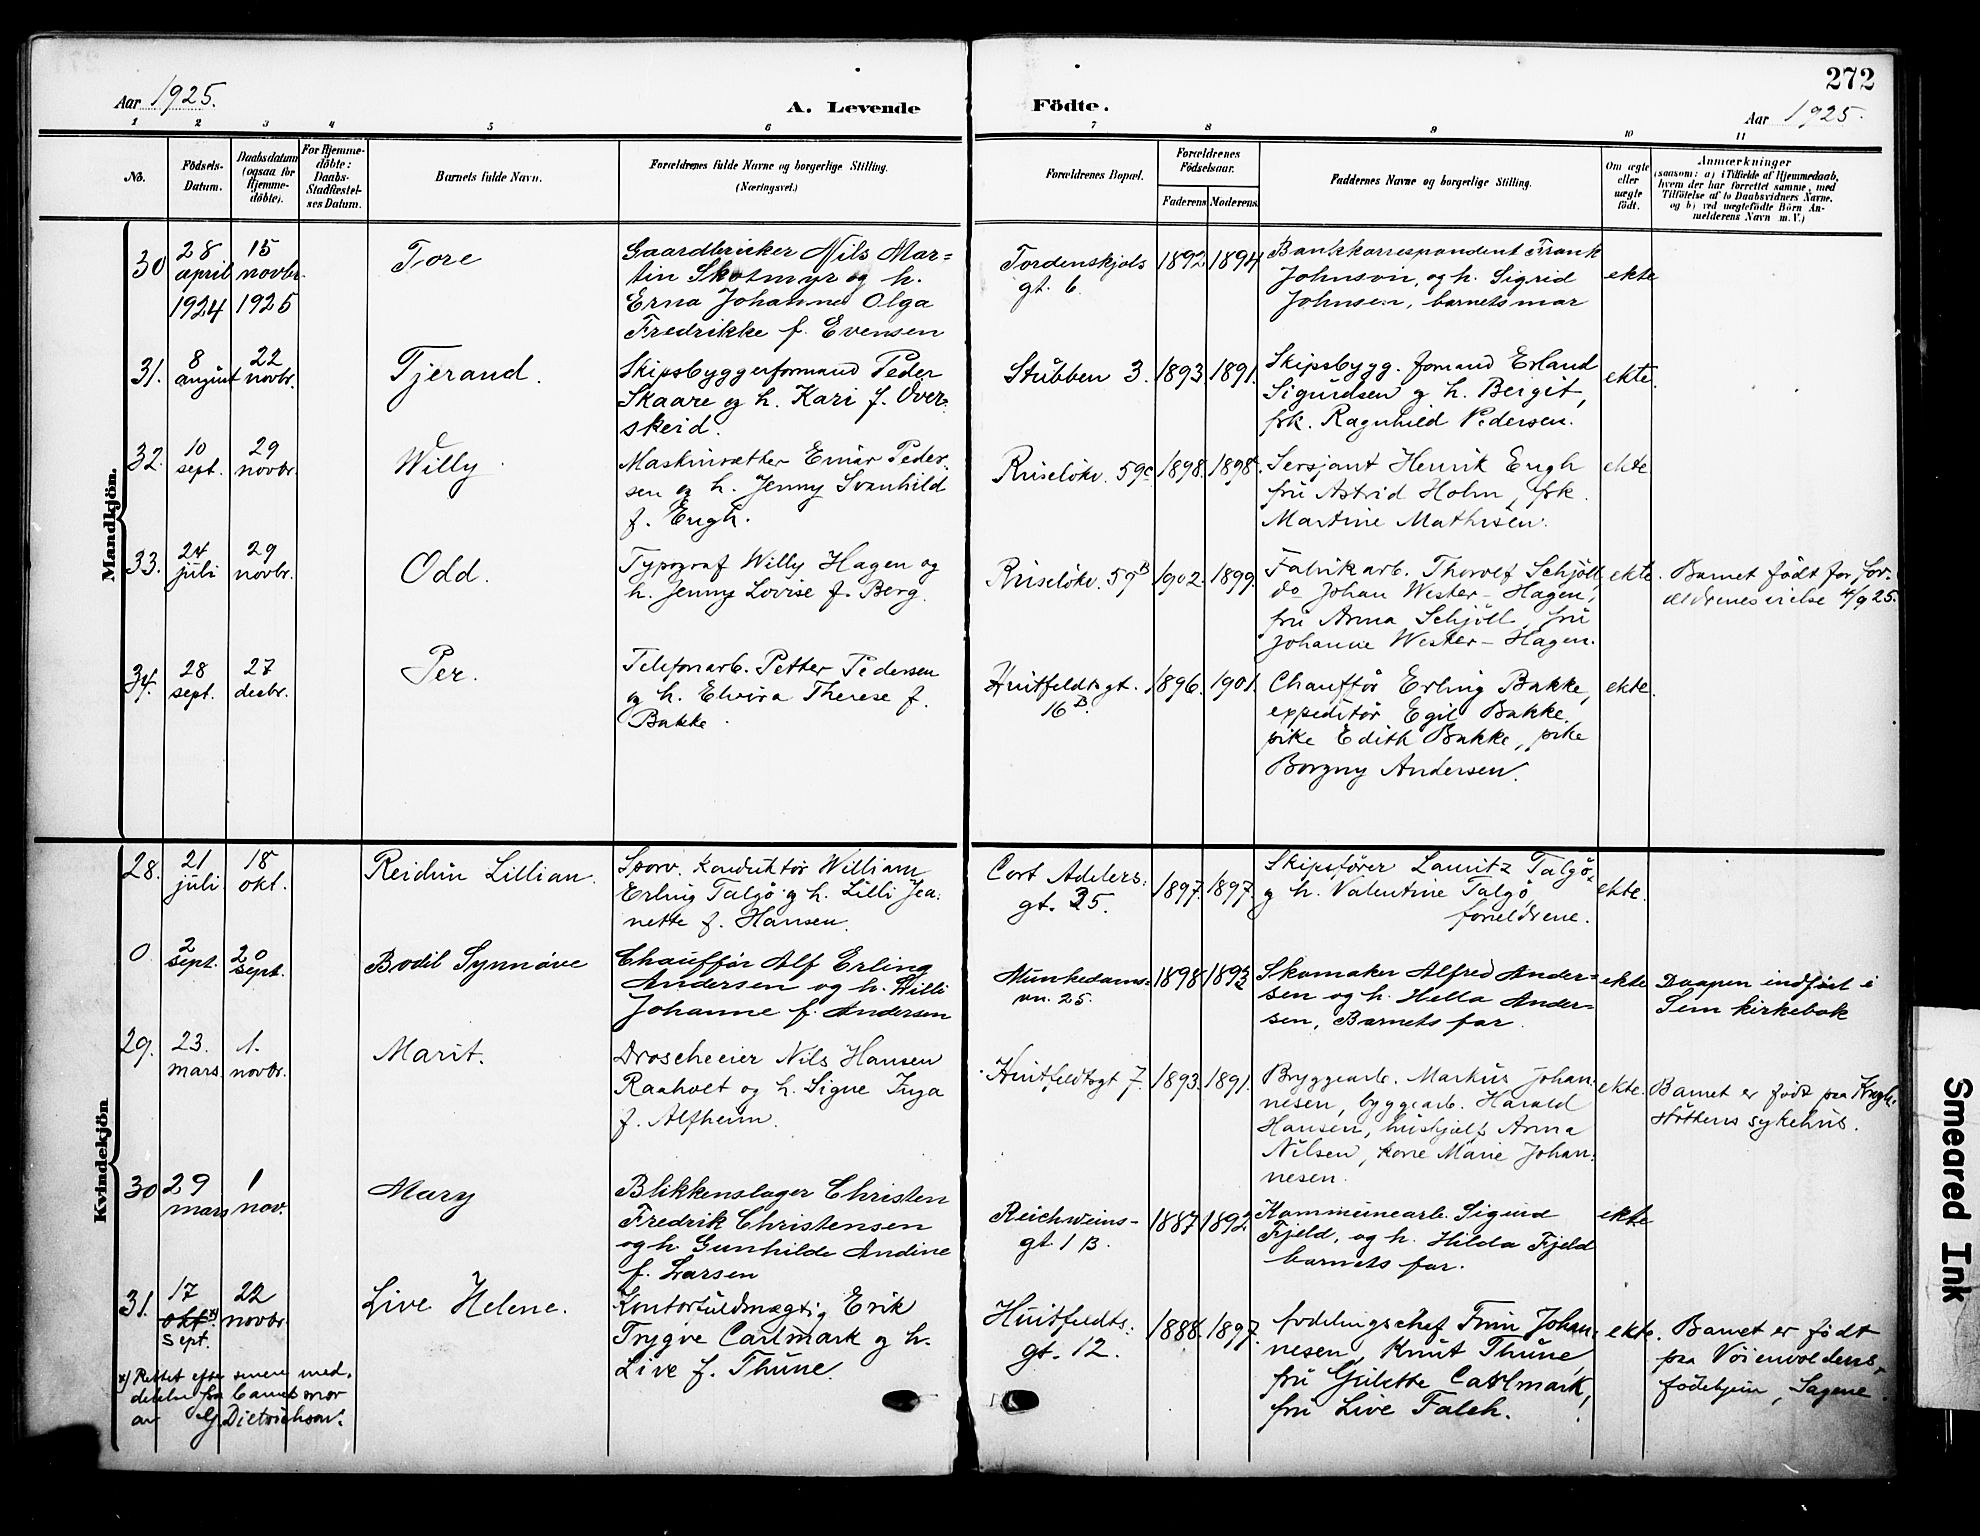 272
Aar 1925.
A. Levende Födte.
Aar 1925.
1 2 3 4 5 6 7 8 9 10 11
No.
Födsels-Datum.
Daabsdatum (ogsaa for Hjemme-döbte).
For Hjemme-döbte: Daabs-Stadfæstel-ses Datum.
Barnets fulde Navn.
Forældrenes fulde Navne og borgerlige Stilling.
(Næringsvei.)
Forældrenes Bopæl.
Forældrenes Födselsaar.
Faderens Moderens
Faddernes Navne og borgerlige Stilling.
Om ægte eller uægte födt.
Anmærkninger
(saasom: a) i Tilfælde af Hjemmedaab,
hvem der har forrettet samme, med
Tilföielse af to Daabsvidners Navne,
og b) ved uægtefödte Börn An-
melderens Navn m. V.)
Mandkjön.
30
28 april 1924
15 novbr. 1925
Tore
Gaardbruker Nils Mar=
tin Skotmyr og h.
Erna Johanne Olga
Fredrikke f. Evensen
Tordenskjols
gt. 6.
1892 1894
Bankkorrespondent Frank
Johnson, og h. Sigrid
Johnsen, barnets mor
ekte
31.
8 august
22 novbr.
Tjerand.
Skipsbyggerformand Peder
Skaare og h. Kari f. Över-
skeid.
Stubben 3.
1893 1891.
Skipsbygg. formand Erland
Sigurdsen og h. Bergit,
frk. Ragnhild Pedersen.
ekte.
32.
10 sept.
29 novbr.
Willy
Maskinsætter Einar Peder-
sen og h. Jenny Svanhild
f. Engh.
Ruselökv. 59c
1898. 1898.
Sersjant Henrik Engh
fru Astrid Holm, frk.
Martine Mathisen.
ekte
33.
24 juli
29 novbr.
Odd.
Typograf Willy Hagen og
h. Jenny Lovise f. Berg.
Ruselökv. 59B
1902. 1899.
Fabrikarb. Thorolf Schjöll,
do Johan Wester-Hagen,
fru Anna Schjöll, fru
Johanne Wester-Hagen.
ekte.
Barnet födt för for-
ældrenes vielse 4/9 25.
34.
28 sept.
27 desbr.
Per.
Telefonarb. Petter Pedersen
og h. Elvira Therese f.
Bakke.
Huitfeldtsgt.
16B.
1896. 1901.
Chaufför Erling Bakke,
expeditör Egil Bakke,
pike Edith Bakke, pike
Borgny Andersen.
ekte.
Kvindekjön
28.
21 juli
18 okt.
Reidun Lillian.
Sporv. konduktör William
Erling Talgö og h. Lilli Jea-
nette f. Hansen.
Cort Adelers-
gt. 35.
1897. 1897.
Skipsförer Lauritz Talgö
og h. Valentine Talgö,
foreldrene.
ekte.
0
2 sept.
20 sept.
Bodil Synnöve
Chaufför Alf Erling
Andersen og h. Willi
Johanne f. Andersen
Munkedams-
vn. 25.
1898 1893
Skomaker Alfred Ander=
sen og h. Hella Ander=
sen, Barnets far.
ekte
Daapen indfört i
Sem kirkebok
29.
23. mars
1. novbr.
Marit.
Droscheeier Nils Hansen
Raaholt og h. Signe Inga
f. Alfheim.
Huitfeldtsgt 7.
1893. 1891.
Bryggearb. Markus Johan-
nesen, byggearb. Harald
Hansen, hushjelp Anna
Nilsen, kone Marie Johan-
nesen.
ekte.
Barnet er födt paa Krogh-
stöttens sykehus.
30
29 mars
1 nov.
Mary
Blikkenslager Christen
Fredrik Christensen
og h. Gunhilde Andine
f. Larsen
Reichweins-
gt. 1 B.
1887 1892.
Kommunearb. Sigurd
Fjeld, og h. Hilda Fjeld
barnets far.
ekte
31.
17 okt x) sept.
22 novbr.
Live Helene.
Kontorfuldmægtig Erik
Trygve Carlmark og h.
Live f. Thune.
Huitfeldts-
gt. 12.
1888. 1897.
Avdelingschef Finn Johan-
nesen, Knut Thune,
fru Carlmark,
fru Live Falch.
ekte.
Barnet er födt
paa Vöienvoldens
födehjem, Sagene.
x) Rettet efter senere med-
delelse fra barnets mor
av Dietrichson.
Smeared Ink